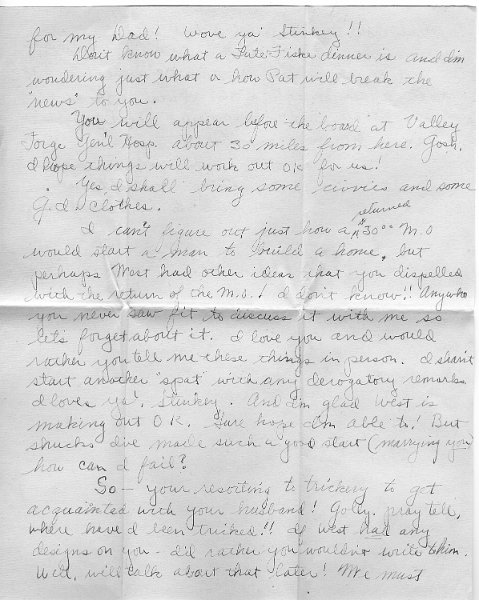 for my Dad! Wove ya' Stinkey!!
Don't know what a Lute-Fiske dinner is and I'm
wondering just what or how Pat will break the
"news" to you.
You will appear before "the board" at Valley
Forge Gen'l Hosp. about 30 miles from here. Gosh,
I hope things will work out OK for us!
Yes, I shall bring some civvies and some
G.I. clothes.
I can't figure out just how a returned $30.00 M.O
would start a man to build a home, but
perhaps West had other ideas that you dispelled
with the return of the M.O.! I don't know!! Anywho
you never saw fit to discuss it with me so
let's forget about it. I love you and would
rather you tell me these things in person. I shan't
start another "spat" with any derogatory remarks.
I loves ya', Stinkey. And I'm glad West is
making out O.K. Sure hope I'm able to! But
shucks I've made such a good start (marrying you)
how can I fail?
So— your resorting to trickery to get
acquainted with your husband! Golly, pray tell,
where have I been tricked!! If West had any
designs on you - I'd rather you wouldn't write to him.
Well, will talk about that later! We must